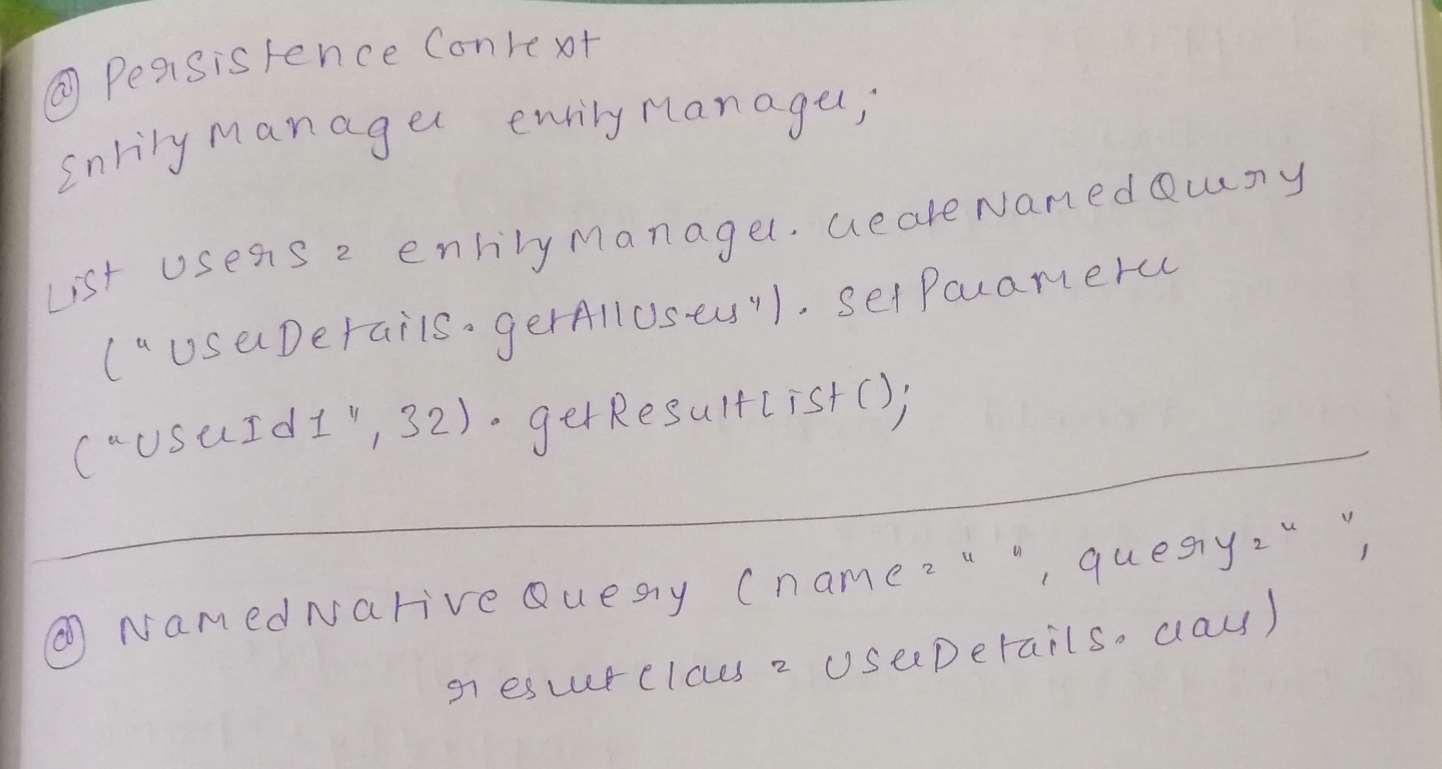 @ Persistence Context
Entity Manager entity Manager;
List users = entity Manager. create Named Query
("UserDetails. getAllUsers"). set Parameter
("UserId1", 32). getResultList();
@ Named Native Query (name = " ", query = " ",
result class = UserDetails. class)